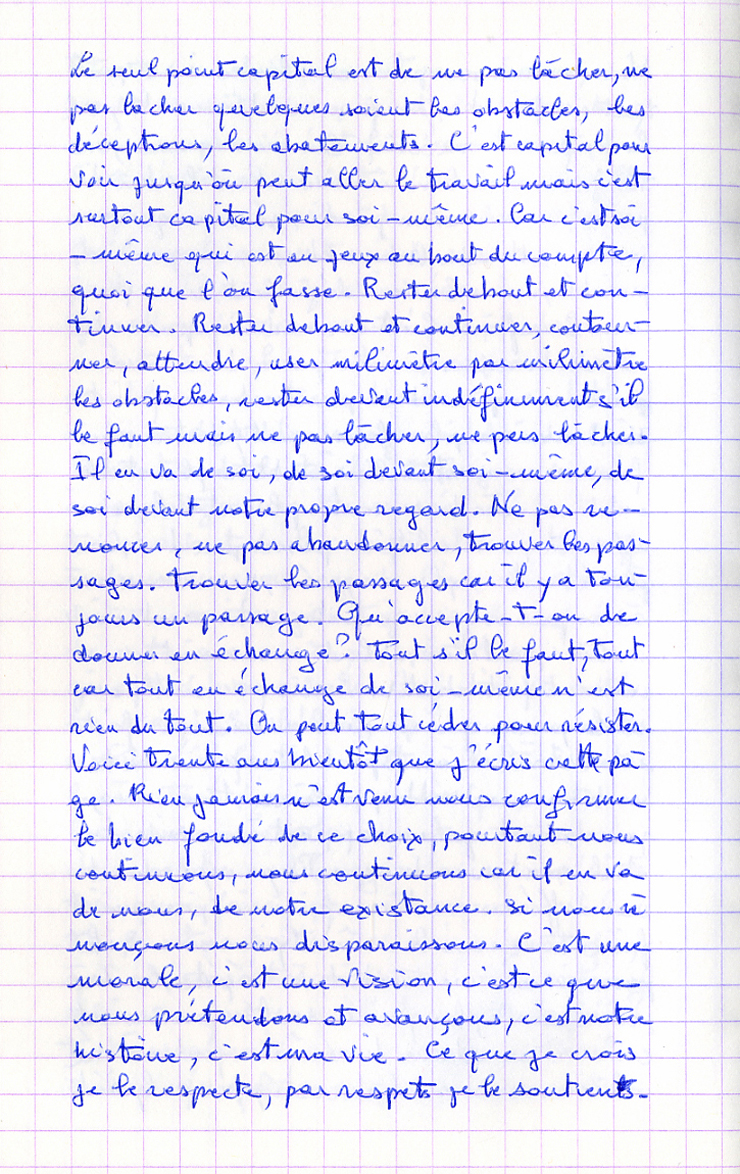 Le seul point capital est de ne pas lâcher, ne
pas lacher quelques soient les obstacles, les
déceptions, les abatements. C'est capital pour
voir jusqu'où peut aller le travail mais c'est
surtout capital pour soi-même. Car c'est soi
-même qui est en jeux au bout du compte,
quoi que l'on fasse. Rester debout et con-
tinuer. Rester debout et continuer, contour-
ner, attendre, user milimètre par milimètre
les obstacles, rester devant indéfiniment s'il
le faut mais ne pas lâcher, ne pas lâcher.
Il en va de soi, de soi devant soi-même, de
soi devant notre propre regard. Ne pas re-
noncer, ne pas abandonner, trouver les pas-
sages. Trouver les passages car il y a tou-
jours un passage. Qu'accepte-t-on de
donner en échange? Tout s'il le faut, tout
car tout en échange de soi-même n'est
rien du tout. On peut tout céder pour résister.
Voici trente ans bientôt que j'écris cette pa
ge. Rien jamais n'est venu nous confirmer
le bien fondé de ce choix, pourtant nous
continuons, nous continuons car il en va
de nous, de notre existance. Si nous re
nonçons nous disparaissons. C'est une
morale, c'est une vision, c'est ce que
nous prétendons et avançons, c'est notre
histoire, c'est ma vie. Ce que je crois
je le respecte, par respets je le soutient.